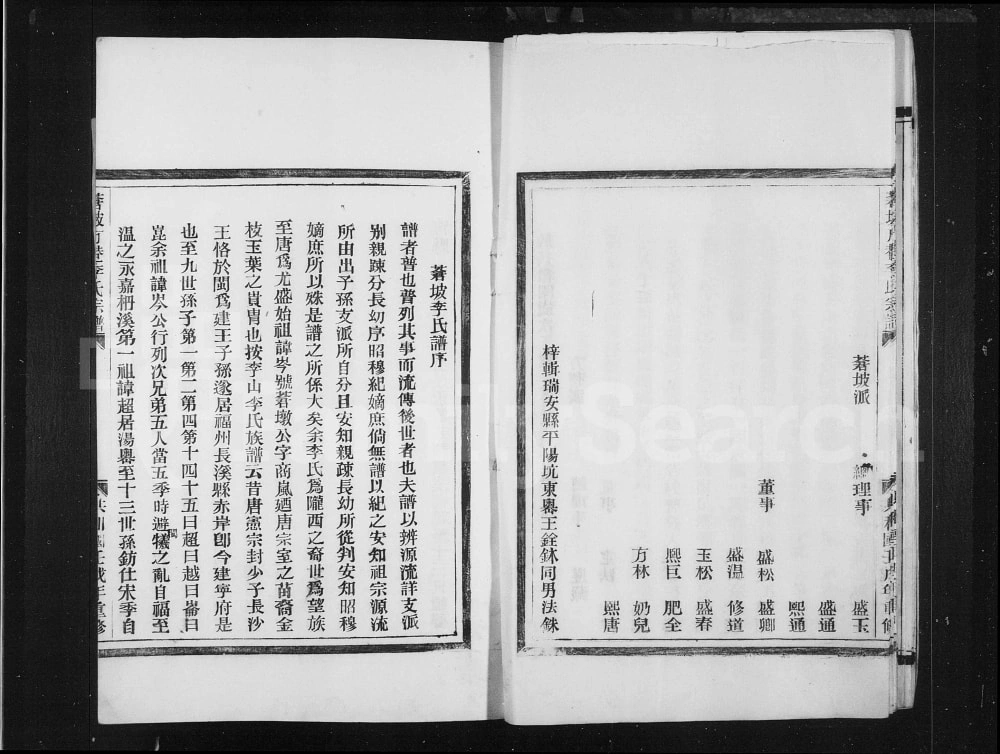 箬坡派
總理事
盛玉
盛通
熙通
董事
盛松 盛卿
盛温 修道
玉松 盛春
熙巨 肥全
方林 奶兒
熙唐
梓輯瑞安縣平陽坑東嶴王銓鉢同男法銖
箬坡李氏譜序
譜者普也普列其事而流傳後世者也夫譜以辨源流詳支派
别親踈分長幼序昭穆紀嫡庶倘無譜以紀之安知祖宗源流
所由出子孫支派所自分且安知親踈長幼所從判安知昭穆
嫡庶所以殊是譜之所係大矣余李氏爲隴西之裔世爲望族
至唐爲尤盛始祖諱岑號箬墩公字商嵐廼唐宗室之苗裔金
枝玉葉之貴冑也按李山李氏族譜云昔唐憲宗封少子長沙
王恪於閩爲建王子孫遂居福州長溪縣赤岸卽今建寧府是
也至九世孫子第一第二第四第十四十五曰超曰越曰崙曰
崑余祖諱岑公行列次兄弟五人當五季時避曦之亂自福至
閩
溫之永嘉枬溪第一祖諱超居湯嶴至十三世孫鈁仕宋季自
FamilySearch